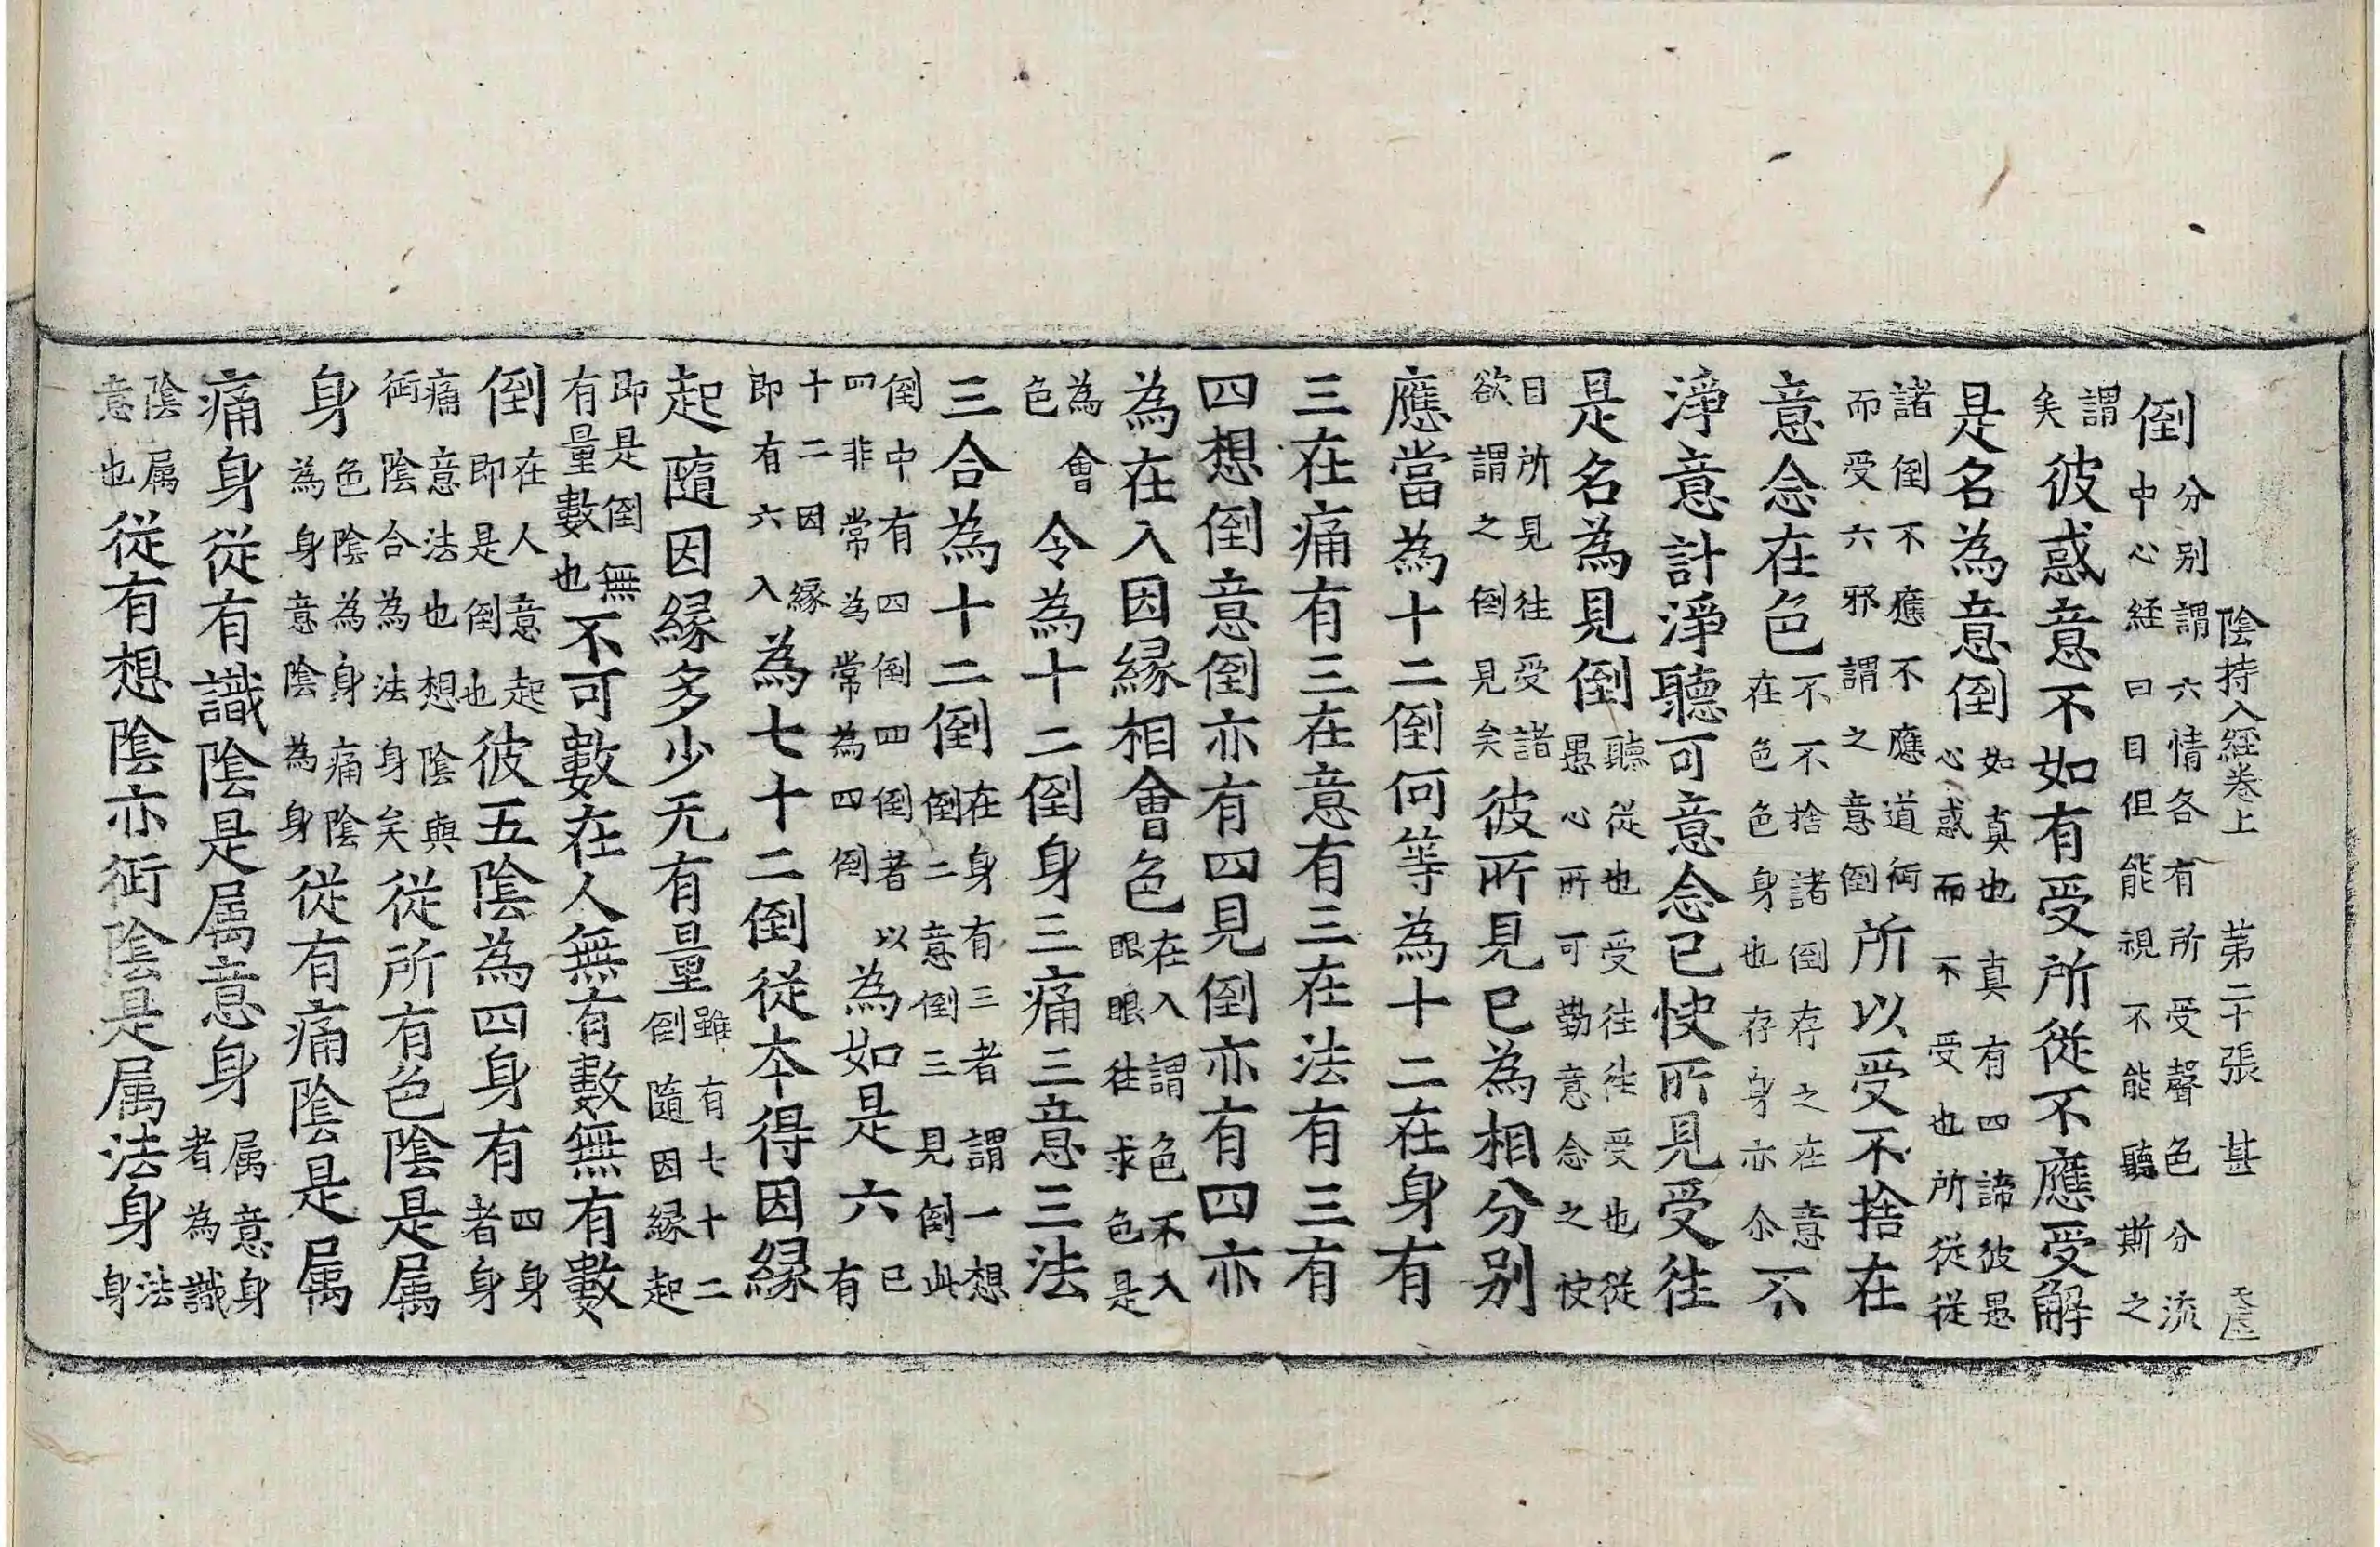 陰持入経卷上　第二十張　甚
倒分别謂六情各有所受聲色分流中心経曰目但能視不能聽斯之
謂矣彼惑意不如有受所從不應受解
是名為意倒如真也真有四諦彼愚心惑而不受也所從從
諸倒不應不應道術而受六邪謂之意倒所以受不捨在
意念在色不不捨諸倒存之在意在色色身也存身亦尒不
淨意計淨聽可意念已快所見受往
是名為見倒聽從也受往往受也從愚心所可勤意念之快
目所見往受諸欲謂之倒見矣彼所見已為相分别
應當為十二倒何等為十二在身有
三在痛有三在意有三在法有三有
四想倒意倒亦有四見倒亦有四亦
為在入因縁相會色在入謂色不入眼眼往求色是
為會色令為十二倒身三痛三意三法
三合為十二倒在身有三者謂一想倒二意倒三見倒此
倒中有四倒四倒者以四非常為常為四倒為如是六已有
十二因縁即有六入為七十二倒從本得因縁
起隨因縁多少无有量雖有七十二倒隨因縁起
即是倒無有量數也不可數在人無有數無有數
倒在人意起即是倒也彼五陰為四身有四身者身
痛意法也想陰與術陰合為法身矣從所有色陰是属
身色陰為身痛陰為身意陰為身從有痛陰是属
痛身從有識陰是属意身属意身者為識
陰属意也從有想陰亦術陰是属法身法身